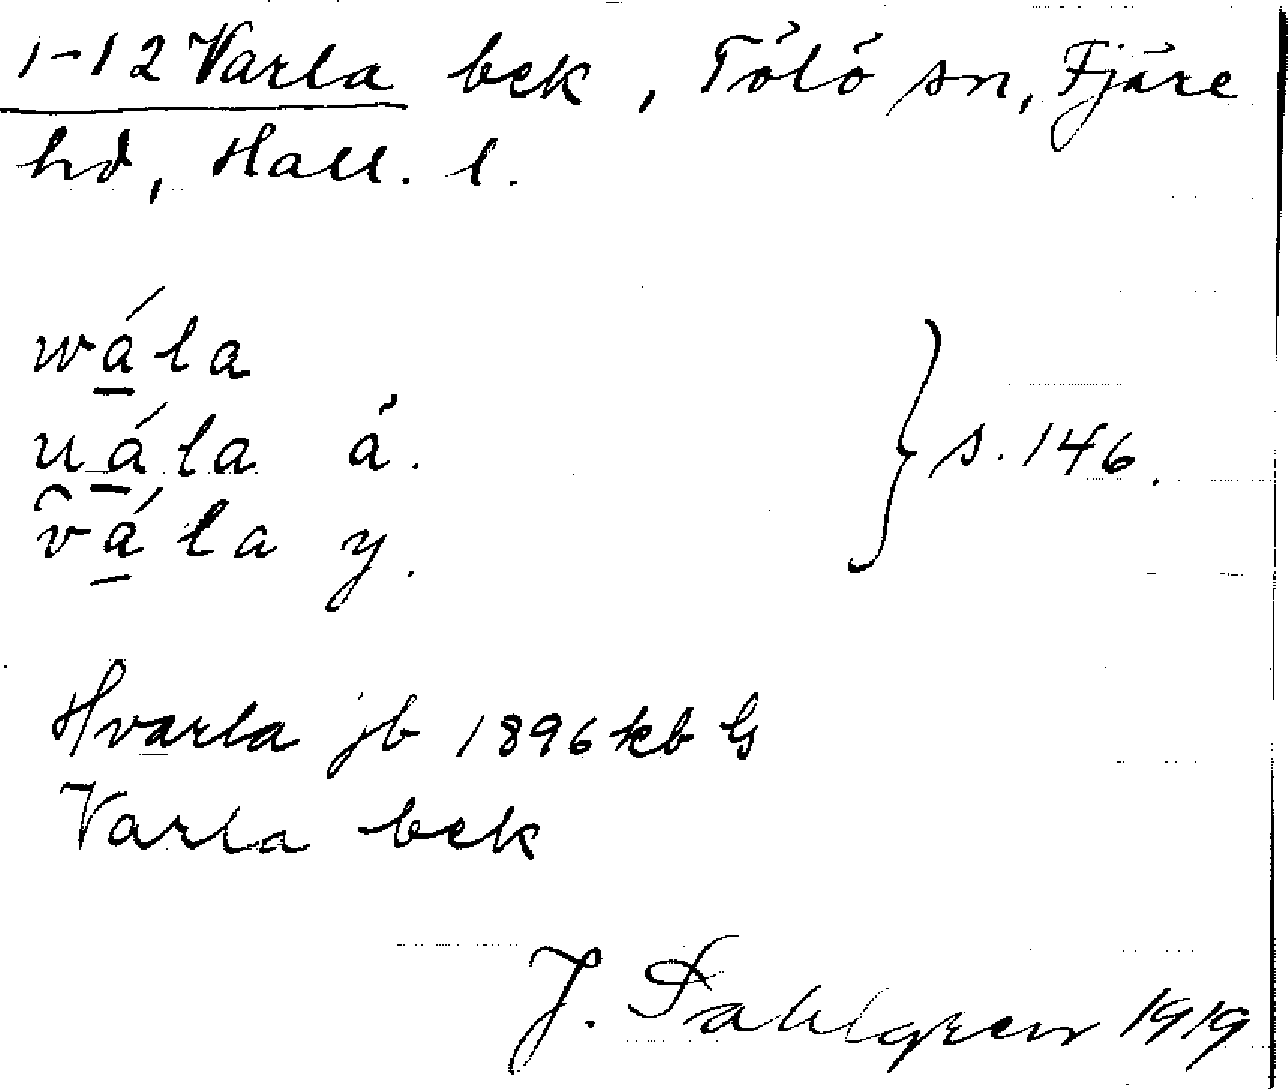 1-12 Varla bek, Tölö sn, Fjäre
hd, Hall. l.
wála
uála å.
v̑ála y.
} s. 146.
Hvarla jb 1896 kb G
Varla bek
J. Sahlgren 1919